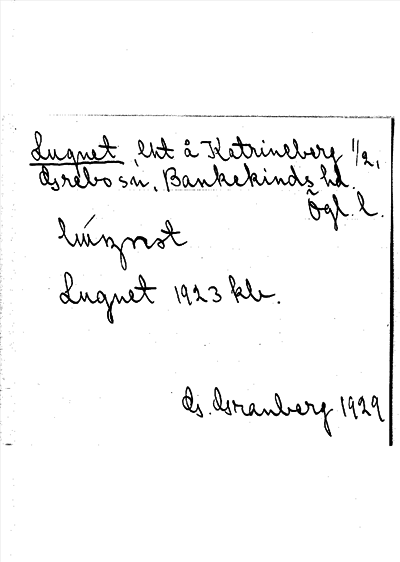 Lugnet, lht å Katrineberg 1/2,
Grebo sn, Bankekinds hd.
Ögl. l.
Lugnet 1923 kb.
G. Granberg 1929